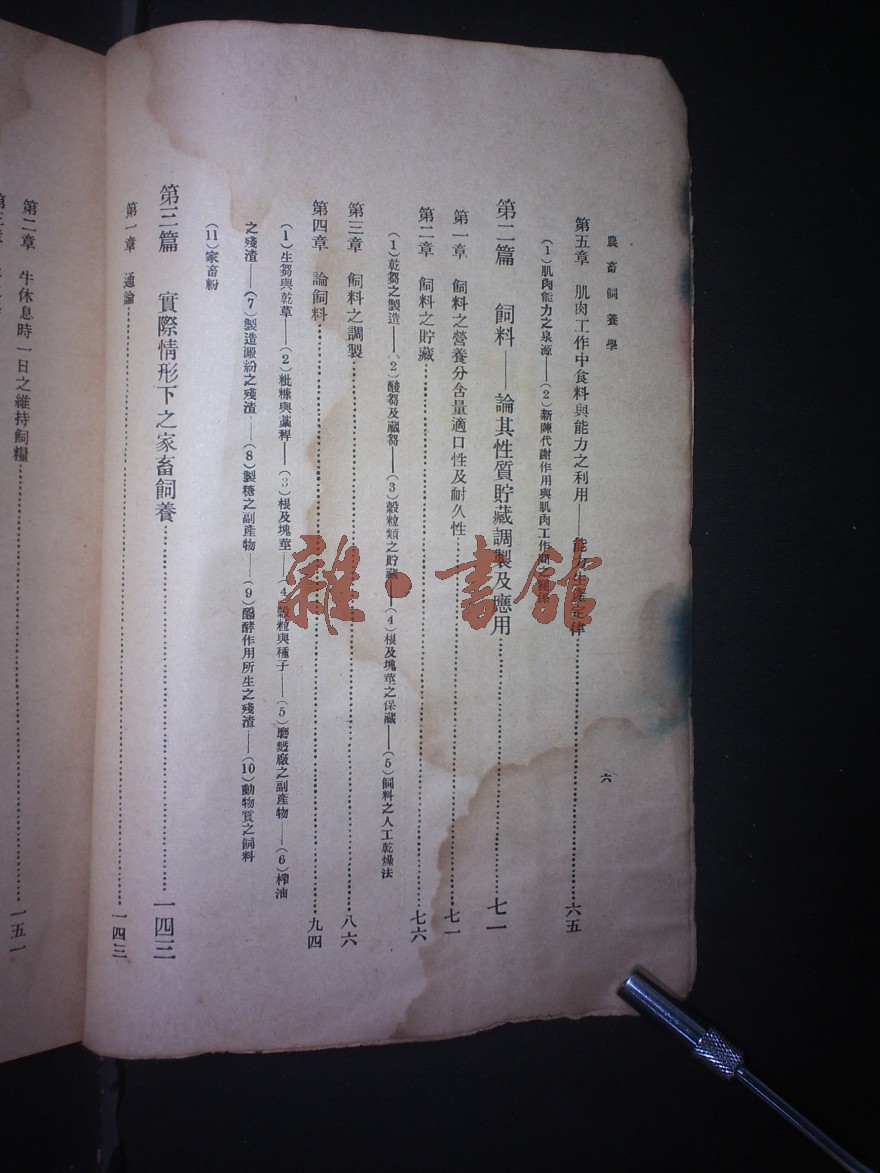 農畜飼養學
六
第五章 肌肉工作中食料與能力之利用——能力生產定律……六五
(1)肌肉能力之泉源——(2)新陳代謝作用與肌肉工作間之關係
第二篇 飼料——論其性質貯藏調製及應用……七一
第一章 飼料之營養分含量適口性及耐久性……七一
第二章 飼料之貯藏……七六
(1)乾芻之製造——(2)酸芻及藏芻——(3)穀粒類之貯藏——(4)根及塊莖之保藏——(5)飼料之人工乾燥法
第三章 飼料之調製……八六
第四章 論飼料……九四
(1)生芻與乾草——(2)秕糠與藁稈——(3)根及塊莖——(4)穀粒與種子——(5)磨麪廠之副產物——(6)榨油
之殘渣——(7)製造澱粉之殘渣——(8)製糖之副產物——(9)醱酵作用所生之殘渣——(10)動物質之飼料
(11)家畜粉
第三篇 實際情形下之家畜飼養……一四三
第一章 通論……一四三
第二章 牛休息時一日之維持飼糧……一五一
雜·書館